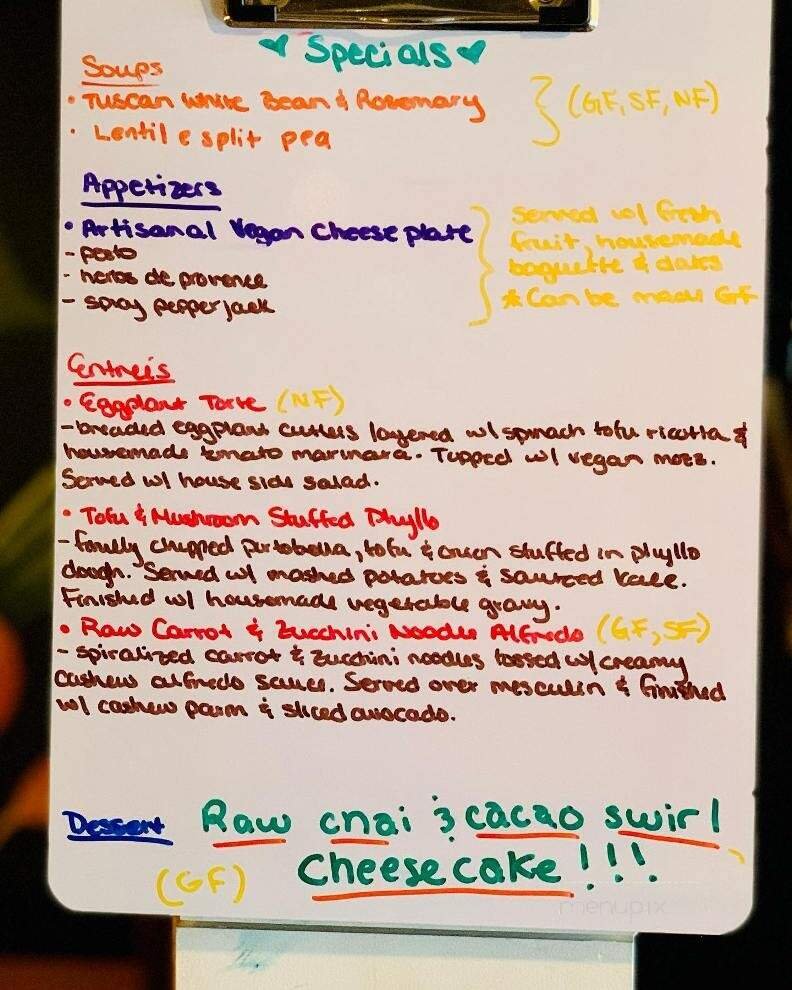 Specials
Soups
• Tuscan White Bean & Rosemary
• Lentil & split pea
(GF, SF, NF)
Appetizers
• Artisanal Vegan Cheese plate
- pesto
- herbs de provence
- spicy pepperjack
Served w/ fresh
fruit, housemade
baguette & dates
* Can be made GF
Entrées
• Eggplant Torte (NF)
- breaded eggplant cutlets layered w/ spinach tofu ricotta &
housemade tomato marinara. Topped w/ vegan mozz.
Served w/ house side salad.
• Tofu & Mushroom Stuffed Phyllo
- finely chopped portobella, tofu & onion stuffed in phyllo
dough. Served w/ mashed potatoes & sauteed kale.
Finished w/ housemade vegetable gravy.
• Raw Carrot & Zucchini Noodle Alfredo (GF, SF)
- spiralized carrot & zucchini noodles tossed w/ creamy
cashew alfredo sauce. Served over mesculin & finished
w/ cashew parm & sliced avocado.
Dessert Raw chai & cacao swirl
(GF) Cheesecake!!!
menupix